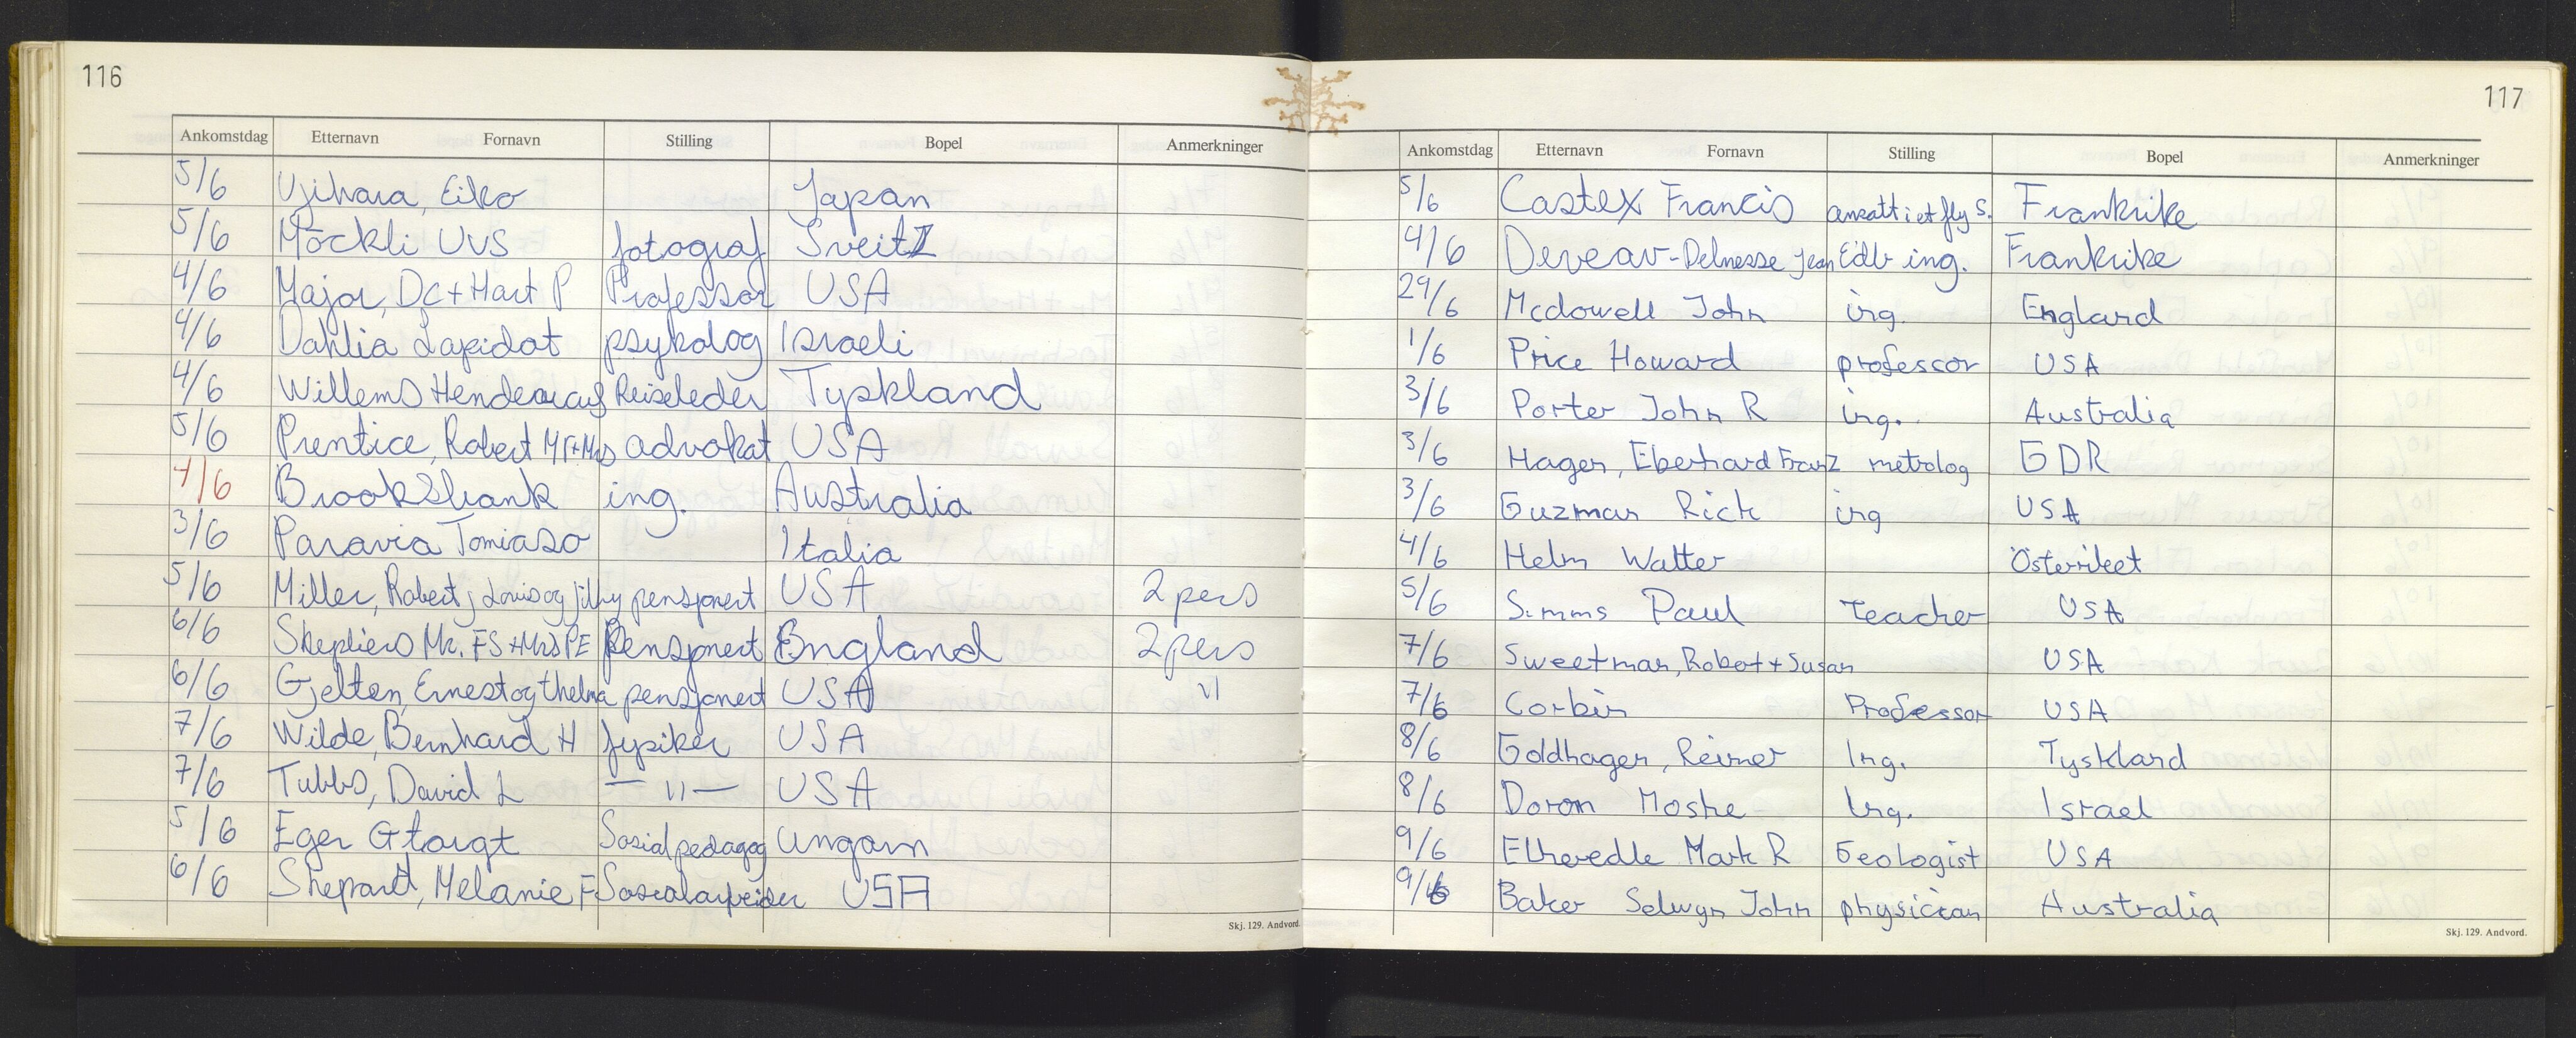 116
Ankomstdag Etternavn Fornavn Stilling Bopel Anmerkninger
5/6 Ujihara, Eiko Japan
5/6 Möckli UVS fotograf Sveitz
4/6 Major, DC + Hart P Professor USA
4/6 Dahlia Lapidot psykolog Israeli
4/6 Willems Reiseleder Tyskland
5/6 Prentice, Robert Mr+Mrs advokat USA
4/6 Brooksbank ing. Australia
3/6 Paravia Tomiaso Italia
5/6 Miller, Robert j Louis og pensjonert USA 2 pers
6/6 Mr. FS + Mrs PE Pensjonert England 2 pers
6/6 Gjelten, Ernest og thelma pensjonert USA 11
7/6 Wilde, Bernhard H fysiker USA
7/6 Tubbs, David L — 11 — USA
5/6 Eger Sosialpedagog Ungarn
6/6 Shepard, Melanie F USA
Skj. 129. Andvord.
117
Ankomstdag Etternavn Fornavn Stilling Bopel Anmerkninger
5/6 Castex Francis ansatt i et fly s. Frankrike
4/6 Deveav-Delnesse Jean Edb ing. Frankrike
29/6 Mcdowell John ing. England
1/6 Price Howard professor USA
3/6 Porter John R ing. Australia
3/6 Hagen, Eberhard Franz metrolog GDR
3/6 Guzman Rick ing USA
4/6 Helm Walter Österriket
5/6 Simms Paul Teacher USA
7/6 Sweetman, Robert + Susan USA
7/6 Corbin Professor USA
8/6 Goldhagen, Reiner Ing. Tyskland
8/6 Doron Moshe Ing. Israel
9/6 Mark R Geologist USA
9/6 Baker Selwyn John physician Australia
Skj. 129. Andvord.